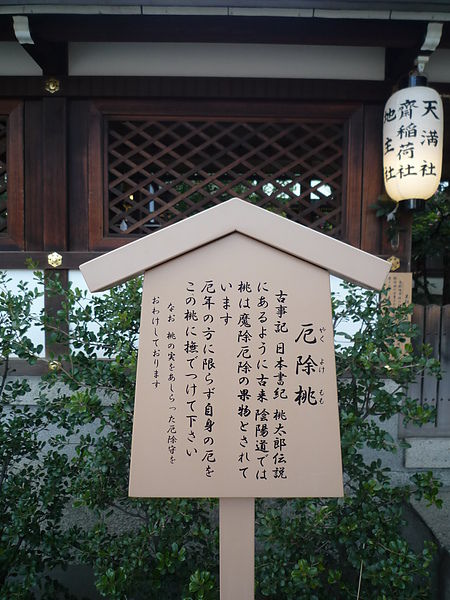 厄除桃
やく よけ もも
古事記 日本書紀 桃太郎伝説
にあるように古来 陰陽道では
桃は魔除厄除の果物とされて
います
厄年の方に限らず自身の厄を
この桃に撫でつけて下さい
なお 桃の実をあしらった厄除守を
おわけしております
天満社
齋稲荷社
地主社